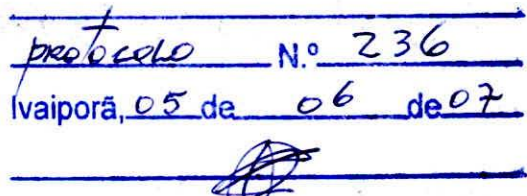 protocolo N.º 236
Ivaiporã, 05 de 06 de 07